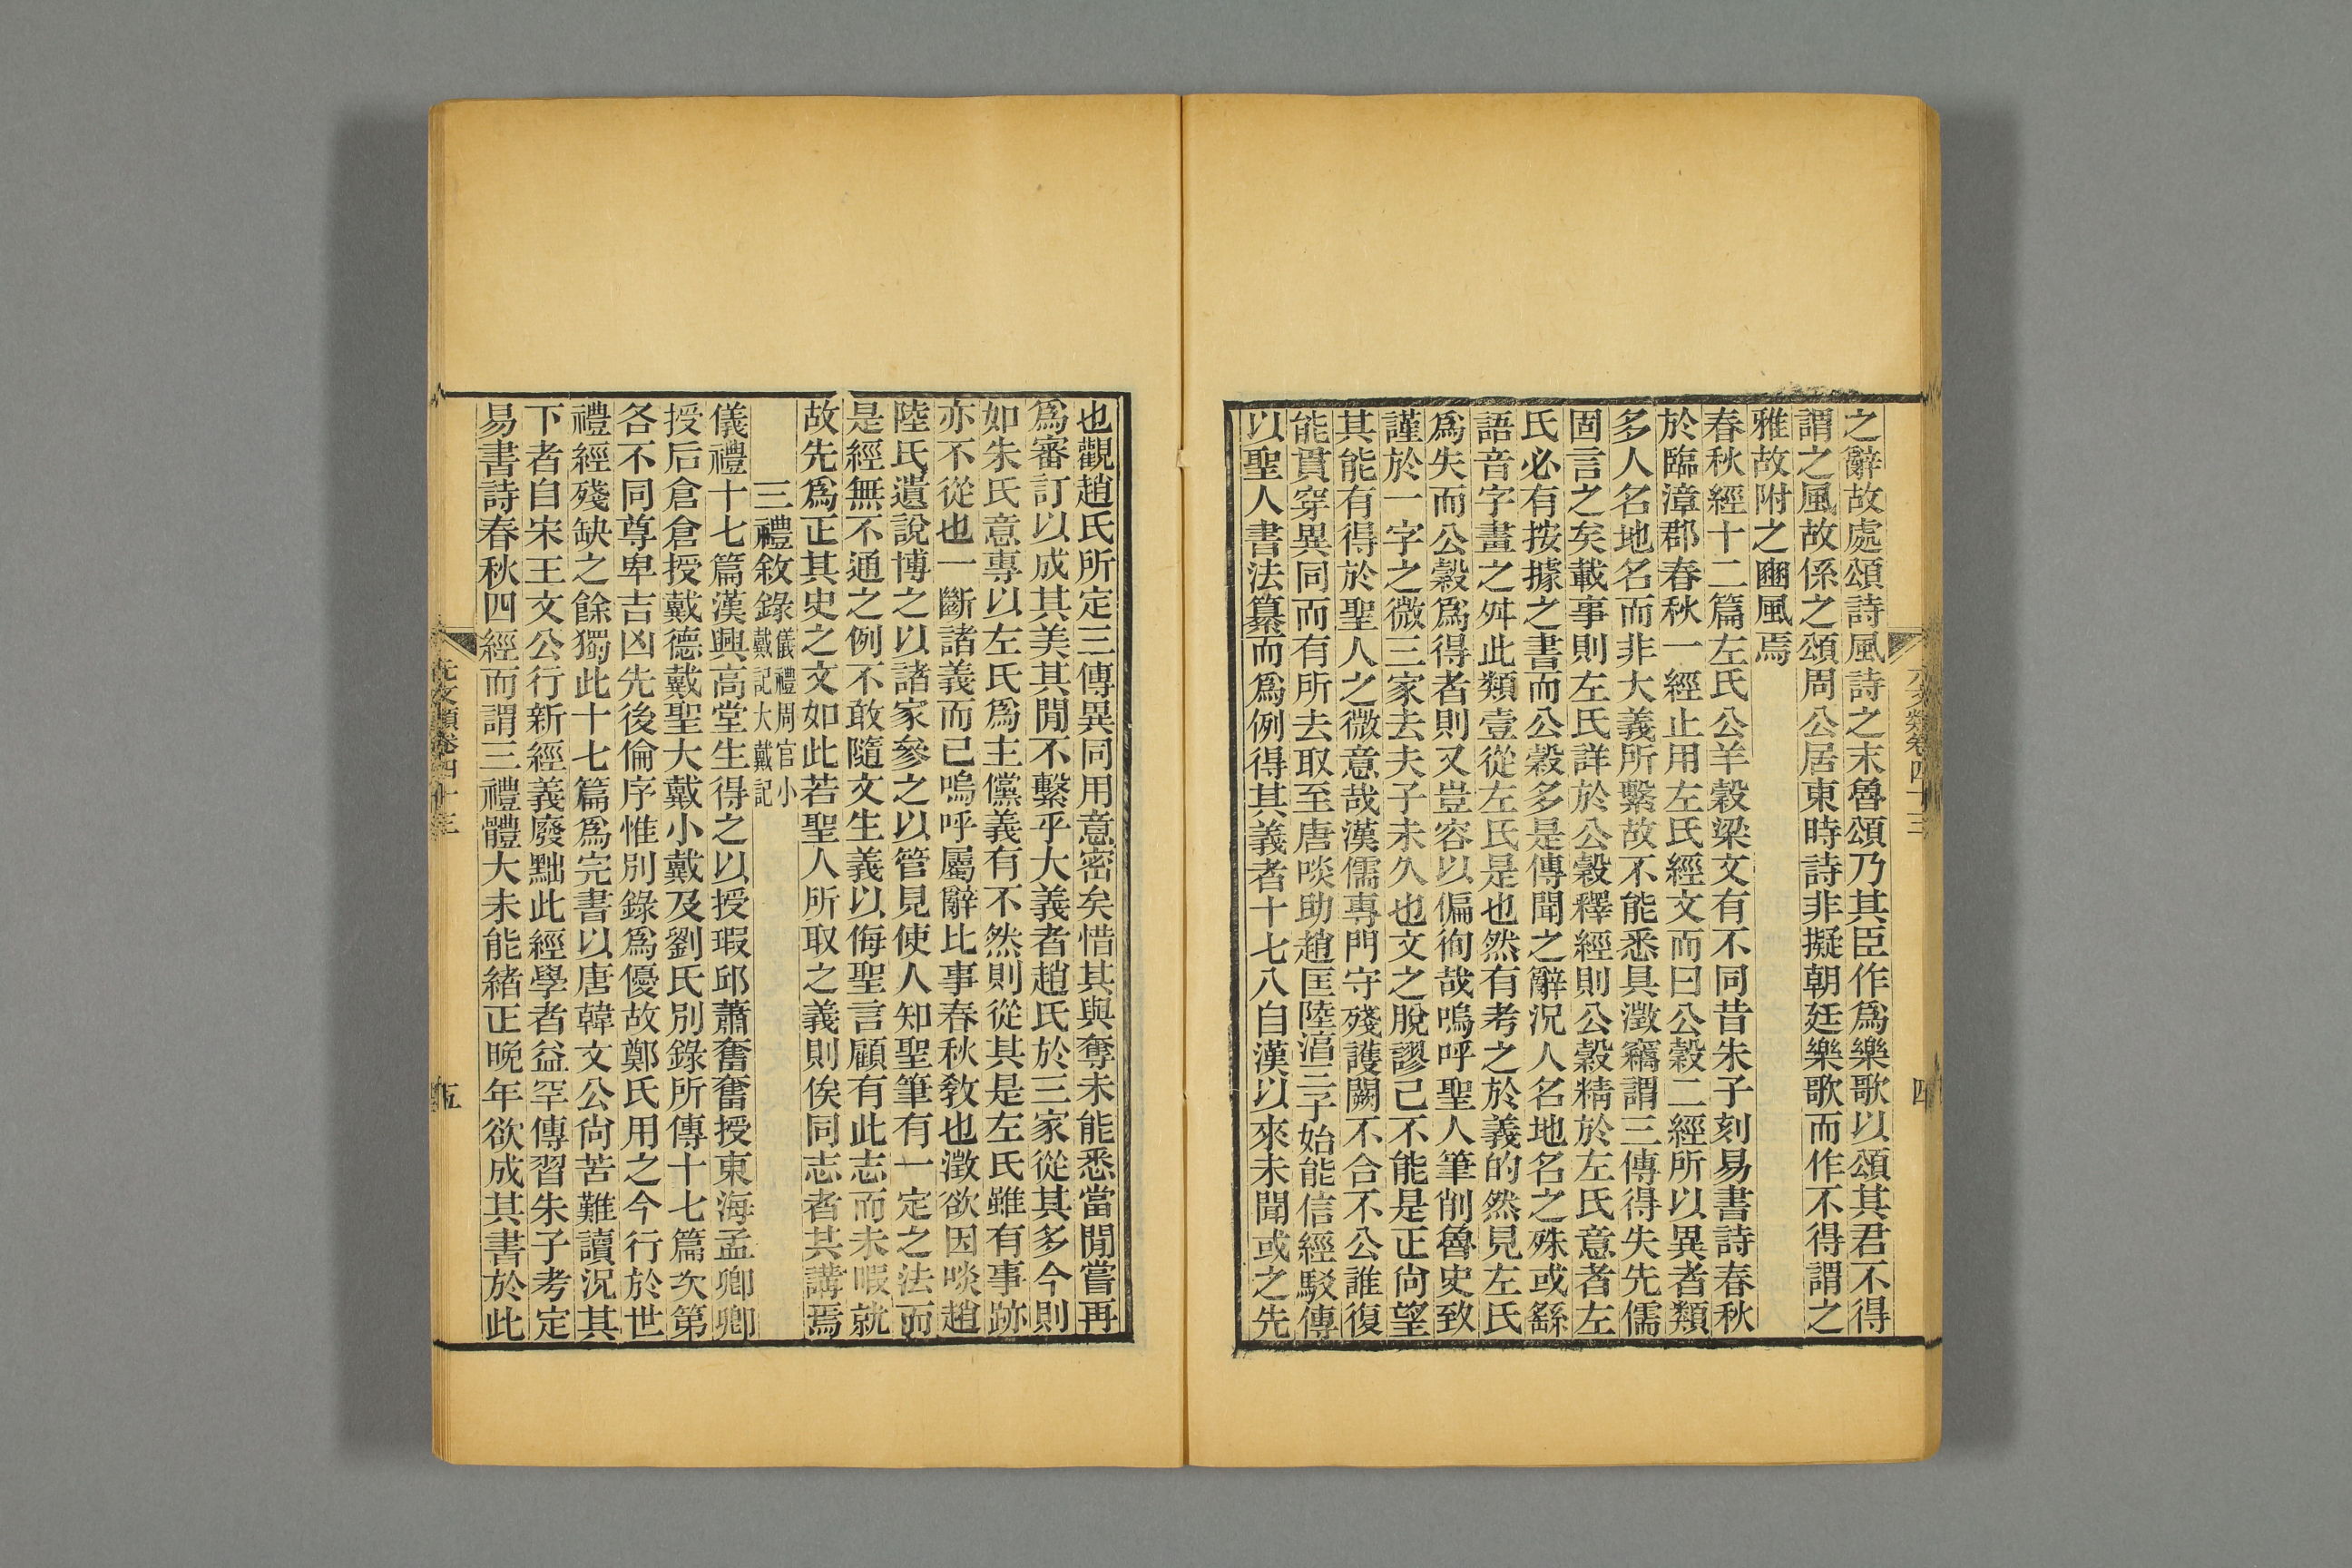 之辭故處頌詩風詩之末魯頌乃其臣作爲樂歌以頌其君不得
謂之風故係之頌周公居東時詩非擬朝廷樂歌而作不得謂之
雅故附之豳風焉
春秋經十二篇左氏公羊穀梁文有不同昔朱子刻易書詩春秋
於臨漳郡春秋一經止用左氏經文而曰公穀二經所以異者類
多人名地名而非大義所繫故不能悉具澂竊謂三傳得失先儒
固言之矣載事則左氏詳於公穀釋經則公穀精於左氏意者左
氏必有按據之書而公穀多是傳聞之辭況人名地名之殊或繇
語音字畫之舛此類壹從左氏是也然有考之於義的然見左氏
爲失而公穀爲得者則又豈容以偏徇哉嗚呼聖人筆削魯史致
謹於一字之微三家去夫子未久也文之脫謬已不能是正尙望
其能有得於聖人之微意哉漢儒專門守殘護闕不合不公誰復
能貫穿異同而有所去取至唐啖助趙匡陸湻三子始能信經駁傳
以聖人書法纂而爲例得其義者十七八自漢以來未聞或之先
元文類卷四十三
四
也觀趙氏所定三傳異同用意密矣惜其與奪未能悉當閒嘗再
爲審訂以成其美其閒不繫乎大義者趙氏於三家從其多今則
如朱氏意專以左氏爲主儻義有不然則從其是左氏雖有事跡
亦不從也一斷諸義而已嗚呼屬辭比事春秋敎也澂欲因啖趙
陸氏遺說博之以諸家參之以管見使人知聖筆有一定之法而
是經無不通之例不敢隨文生義以侮聖言顧有此志而未暇就
故先爲正其史之文如此若聖人所取之義則俟同志者其講焉
三禮敘錄儀禮周官小戴記大戴記
儀禮十七篇漢興高堂生得之以授瑕邱蕭奮奮授東海孟卿卿
授后倉倉授戴德戴聖大戴小戴及劉氏別錄所傳十七篇次第
各不同尊卑吉凶先後倫序惟別錄爲優故鄭氏用之今行於世
禮經殘缺之餘獨此十七篇爲完書以唐韓文公尙苦難讀況其
下者自宋王文公行新經義廢黜此經學者益罕傳習朱子考定
易書詩春秋四經而謂三禮體大未能緒正晚年欲成其書於此
元文類卷四十三
五